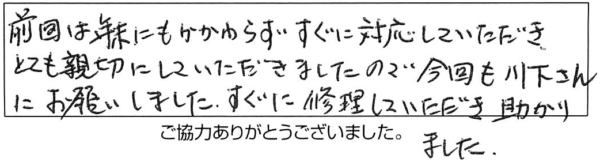 前回は年末にもかかわらずすぐに対応していただき
とても親切にしていただきましたので今回も川下さん
にお願いしました.すぐに修理していただき助かり
ました.
ご協力ありがとうございました。